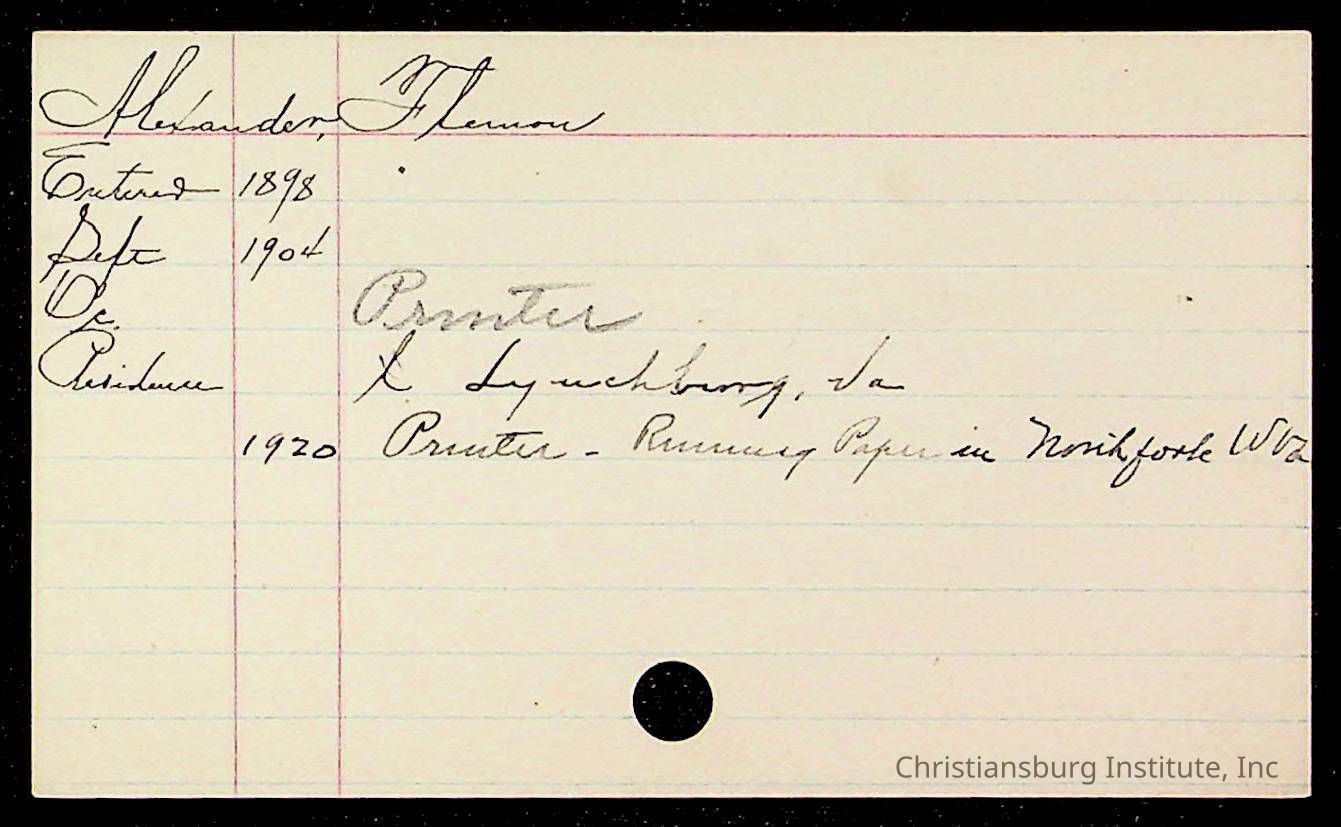 Alexander, Flemon
Entered 1898
Left 1904
Oc. Printer
Residence X Lynchburg, Va
1920 Printer - Running Paper in Northfork W Va
Christiansburg Institute, Inc